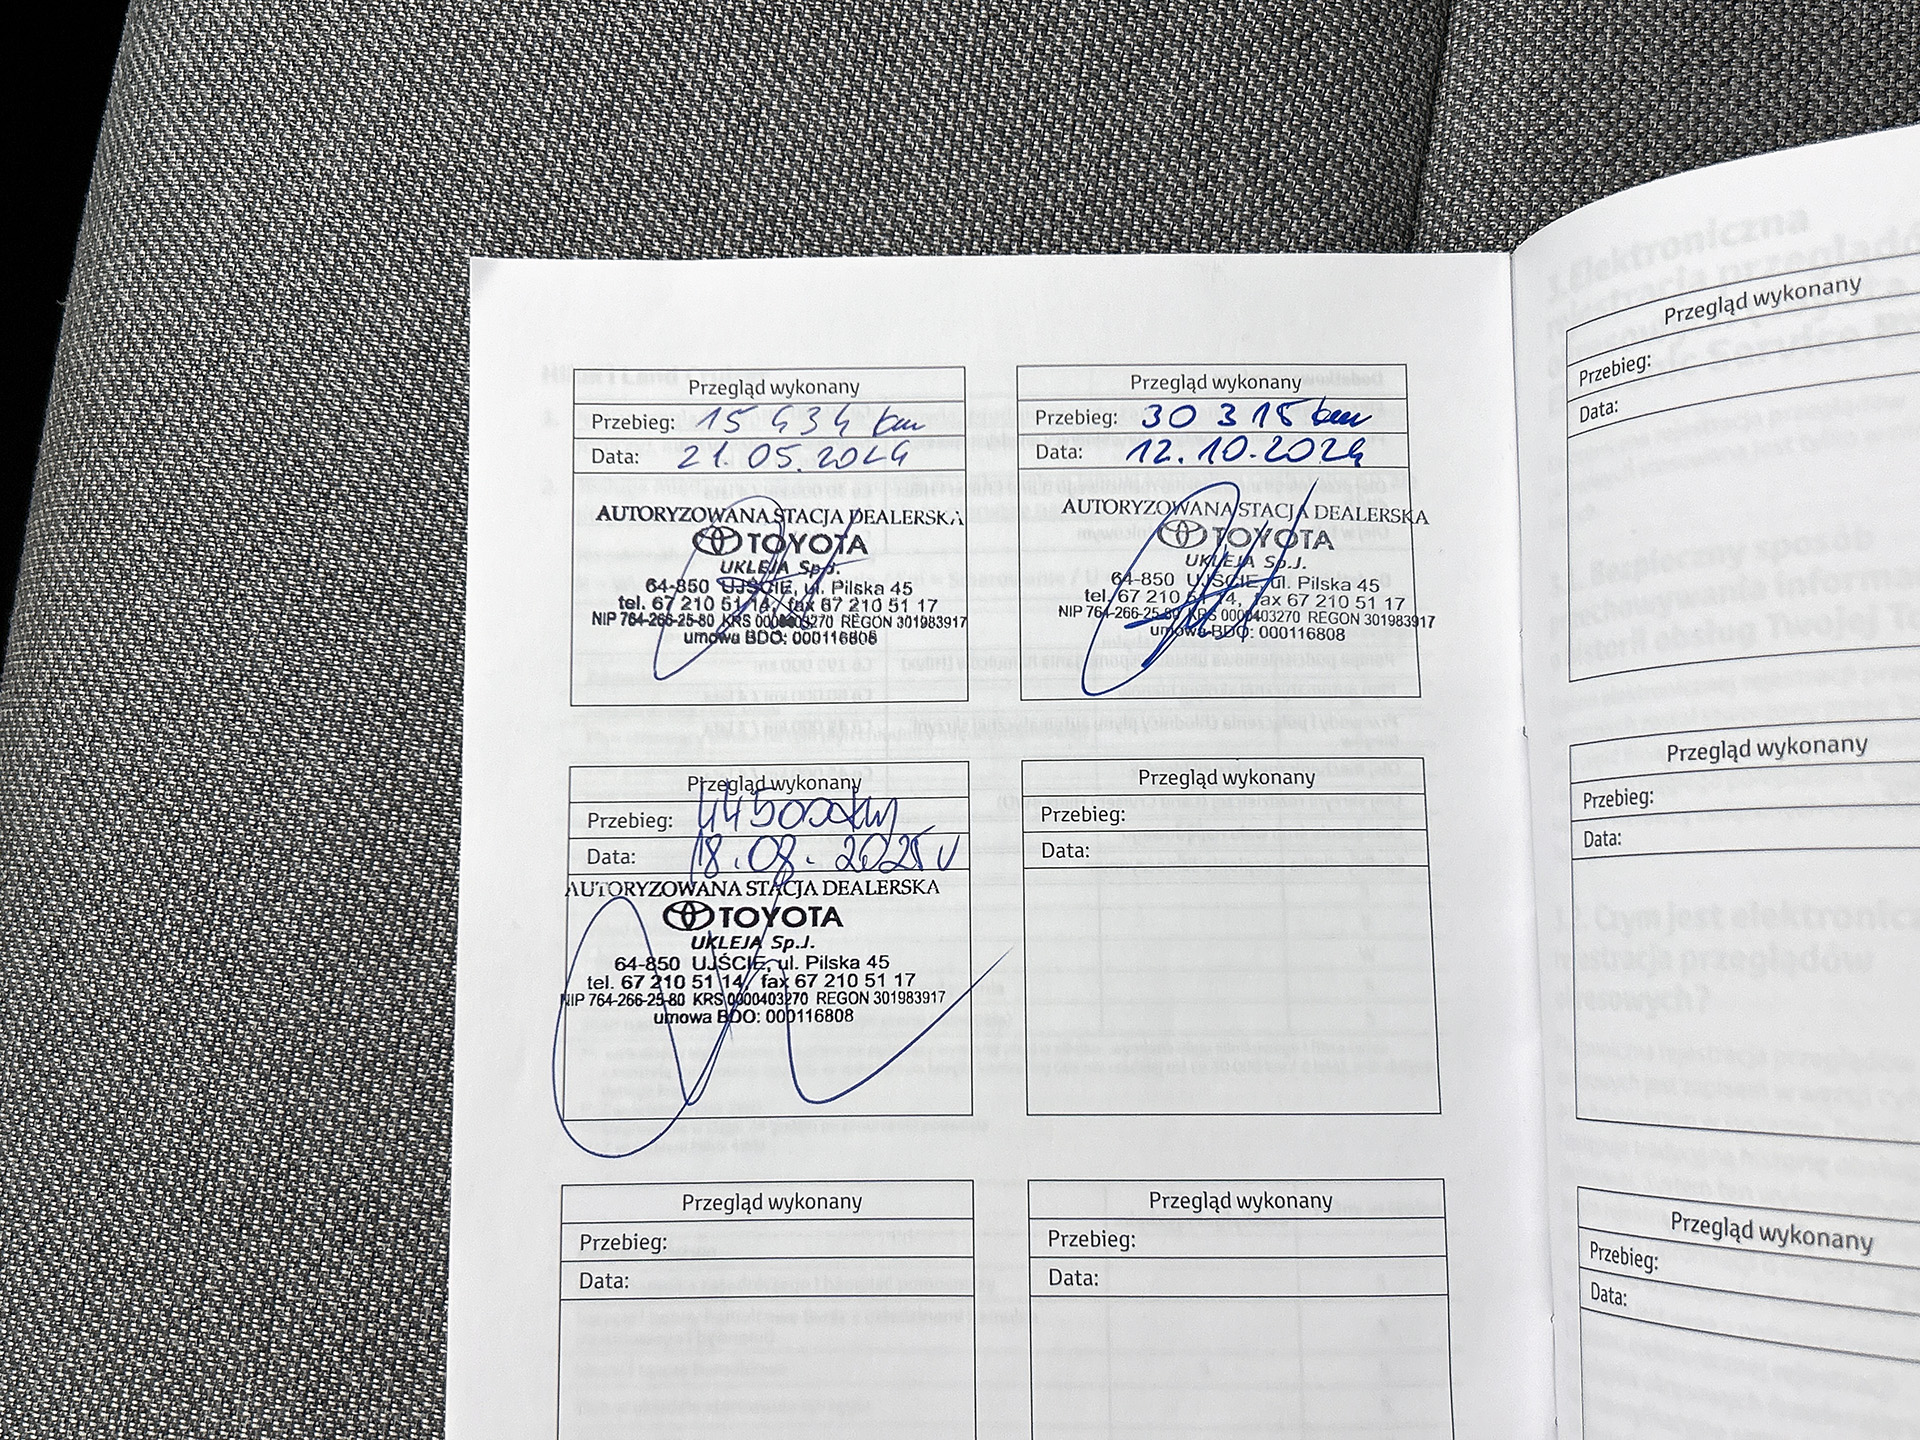 Przegląd wykonany
Przebieg: 15 434 km
Data: 21.05.2024
AUTORYZOWANA STACJA DEALERSKA
TOYOTA
UKLEJA Sp.J.
64-850 UJŚCIE, ul. Pilska 45
tel. 67 210 51 14, fax 67 210 51 17
NIP 764-266-25-80 KRS 0000403270 REGON 301983917
umowa BDO: 000116808
Przegląd wykonany
Przebieg: 30 315 km
Data: 12.10.2024
AUTORYZOWANA STACJA DEALERSKA
TOYOTA
UKLEJA Sp.J.
64-850 UJŚCIE, ul. Pilska 45
tel. 67 210 51 14, fax 67 210 51 17
NIP 764-266-25-80 KRS 0000403270 REGON 301983917
umowa BDO: 000116808
Przegląd wykonany
Przebieg: 44500km
Data: 18.08.2025
AUTORYZOWANA STACJA DEALERSKA
TOYOTA
UKLEJA Sp.J.
64-850 UJŚCIE, ul. Pilska 45
tel. 67 210 51 14, fax 67 210 51 17
NIP 764-266-25-80 KRS 0000403270 REGON 301983917
umowa BDO: 000116808
Przegląd wykonany
Przebieg:
Data:
Przegląd wykonany
Przebieg:
Data:
Przegląd wykonany
Przebieg:
Data:
Przegląd wykonany
Przebieg:
Data:
Przegląd wykonany
Przebieg:
Data:
Przegląd wykonany
Przebieg:
Data: